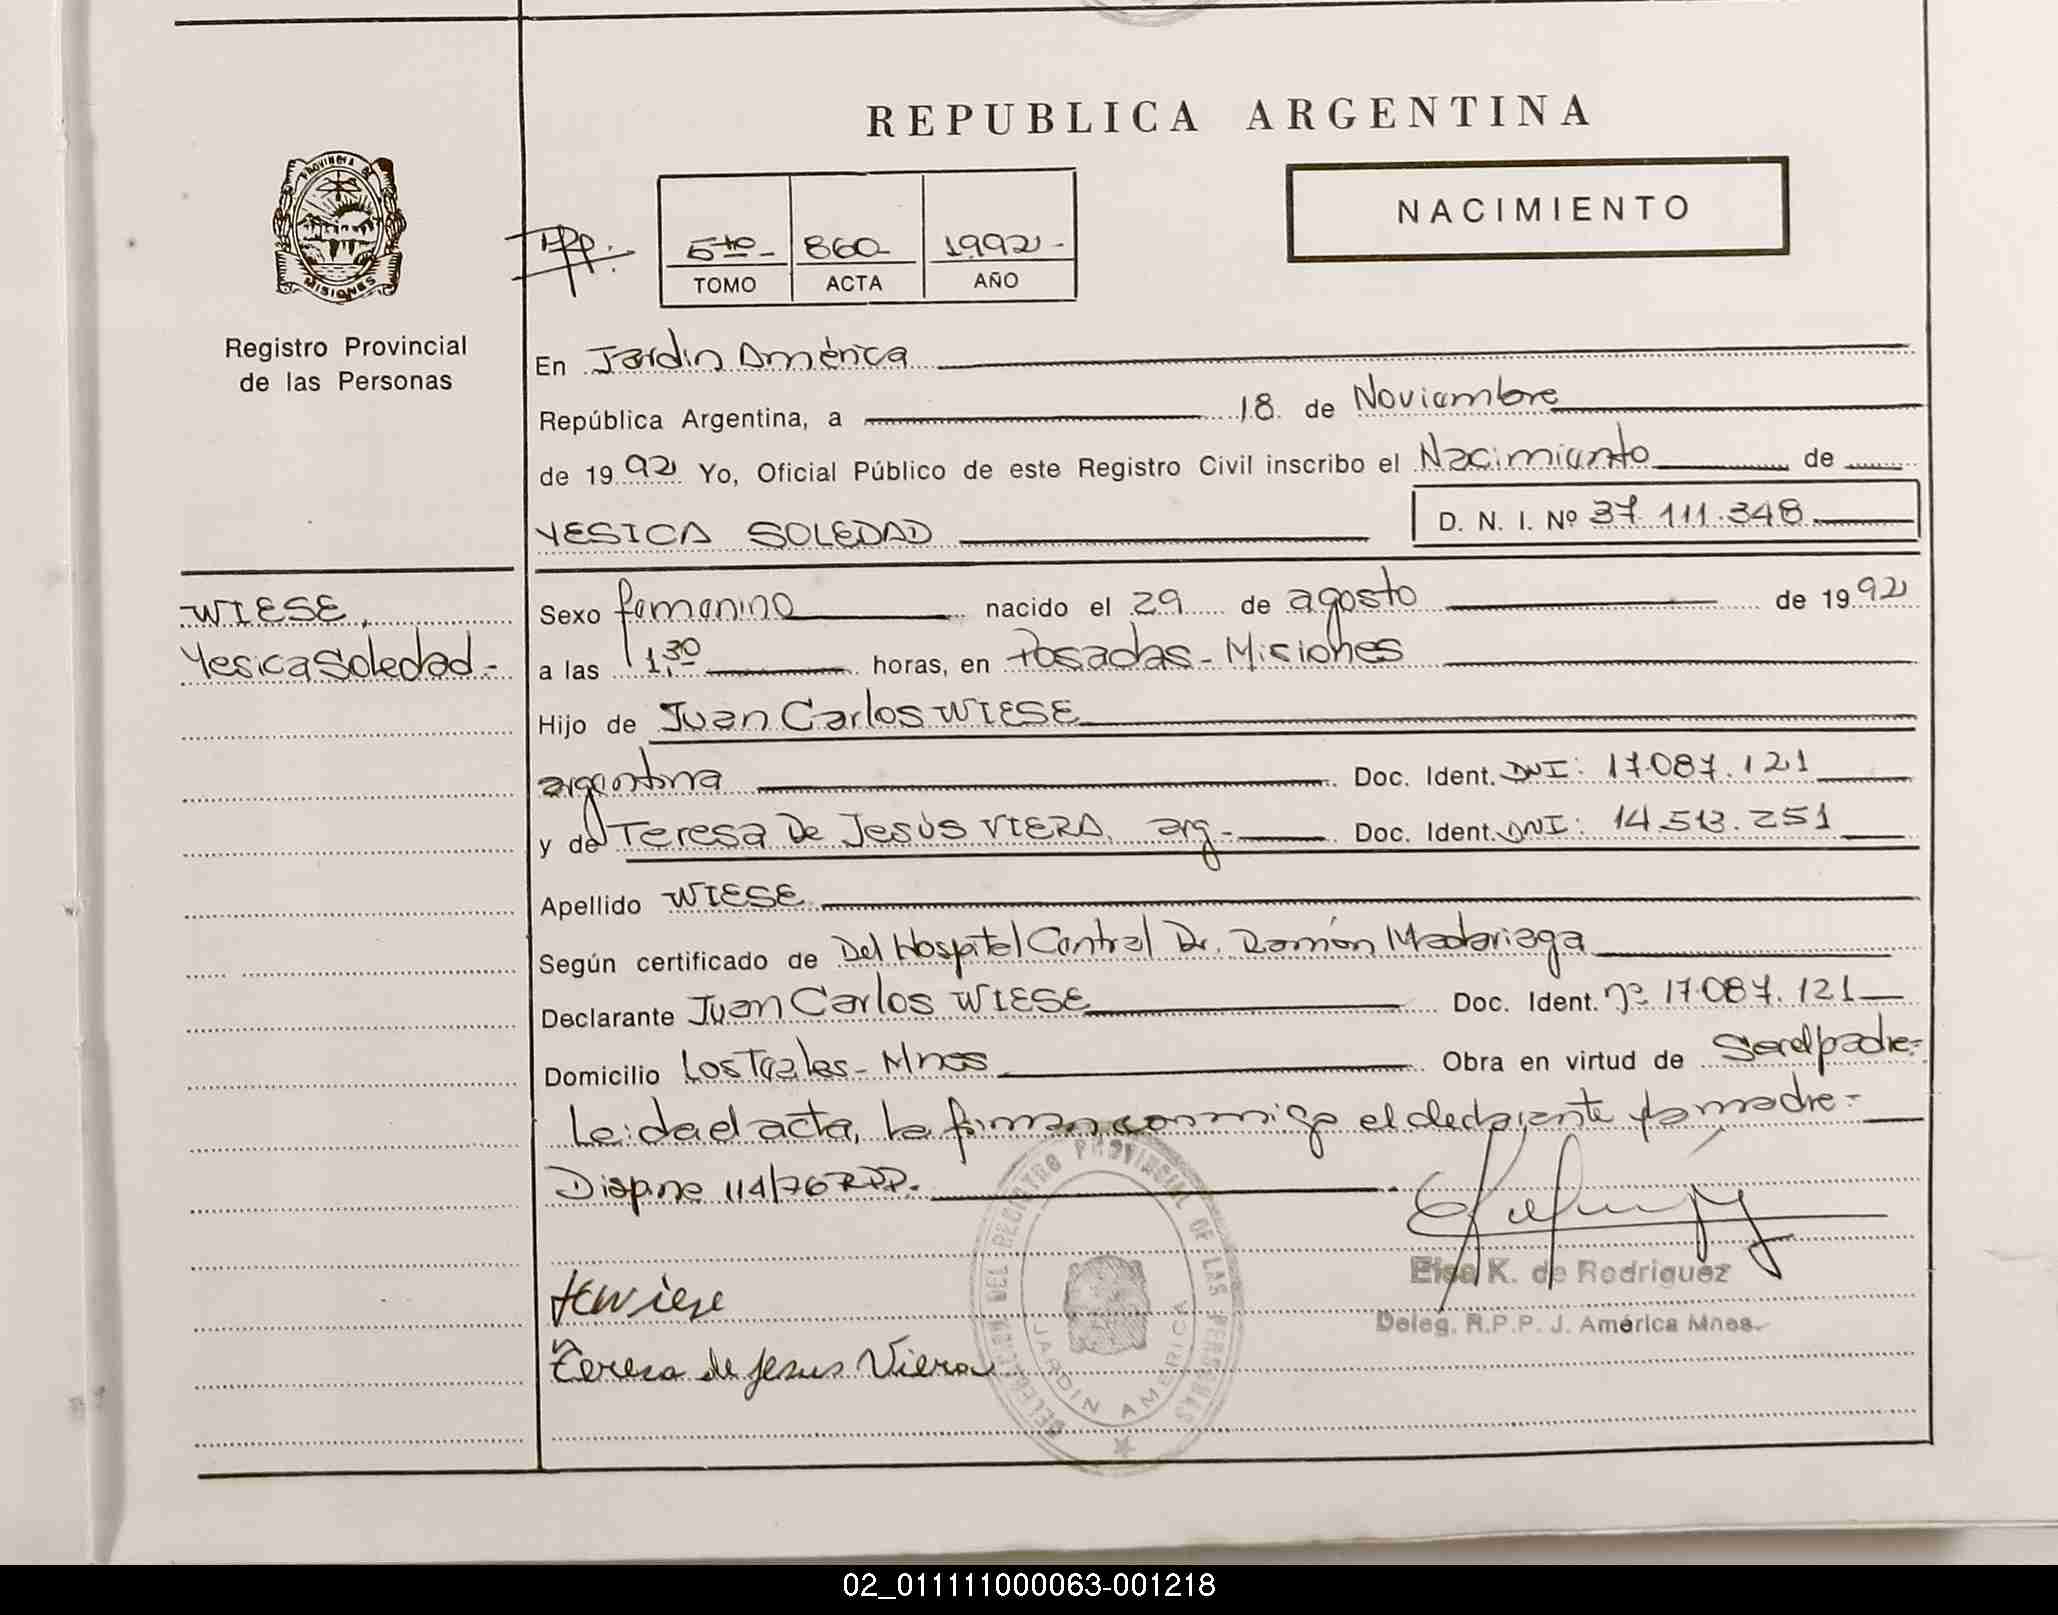 REPUBLICA ARGENTINA
NACIMIENTO
PROVINCIA DE
MISIONES
Registro Provincial
de las Personas
5to- 860 1992-
TOMO ACTA AÑO
En Jardin América
República Argentina, a 18 de Noviembre
de 1992 Yo, Oficial Público de este Registro Civil inscribo el Nacimiento de
YESICA SOLEDAD D. N. I. Nº 37.111.348
WIESE,
Yesica Soledad-
Sexo femenino nacido el 29 de agosto de 1992
a las 1,30 horas, en Posadas - Misiones
Hijo de Juan Carlos WIESE
argentina Doc. Ident. DNI: 17.087.121
y de Teresa De Jesús VIERA, arg- Doc. Ident. DNI: 14.513.251
Apellido WIESE
Según certificado de Del Hospital Central Dr. Ramón Madariaga
Declarante Juan Carlos WIESE Doc. Ident. nº 17.087.121
Domicilio Los Teales - Mnes Obra en virtud de Ser el padre-
Leida el acta, la firman conmigo el declarante y la madre-
Dispne 114/76 RPP.
JCWiese
Teresa de Jesus Viera
DELEGACION DEL REGISTRO PROVINCIAL DE LAS PERSONAS
JARDIN AMERICA
Elsa K. de Rodriguez
Deleg. R.P.P. J. América Mnes.
02_011111000063-001218